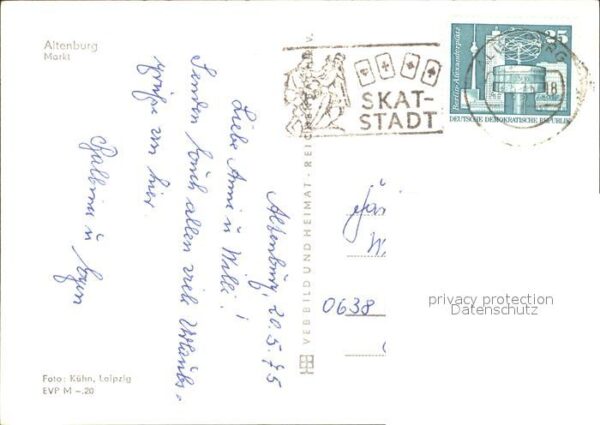 Altenburg
Markt
Altenburg, 20.5.75
Liebe Anni u Willi!
Senden Euch allen viele Urlaubs-
grüße von hier.
u
VEB BILD UND HEIMAT · REICHENBACH i. V.
Foto: Kühn, Leipzig
EVP M –.20
SKAT-
STADT
25
Berlin-Alexanderplatz
DEUTSCHE DEMOKRATISCHE REPUBLIK
18
0638
privacy protection
Datenschutz